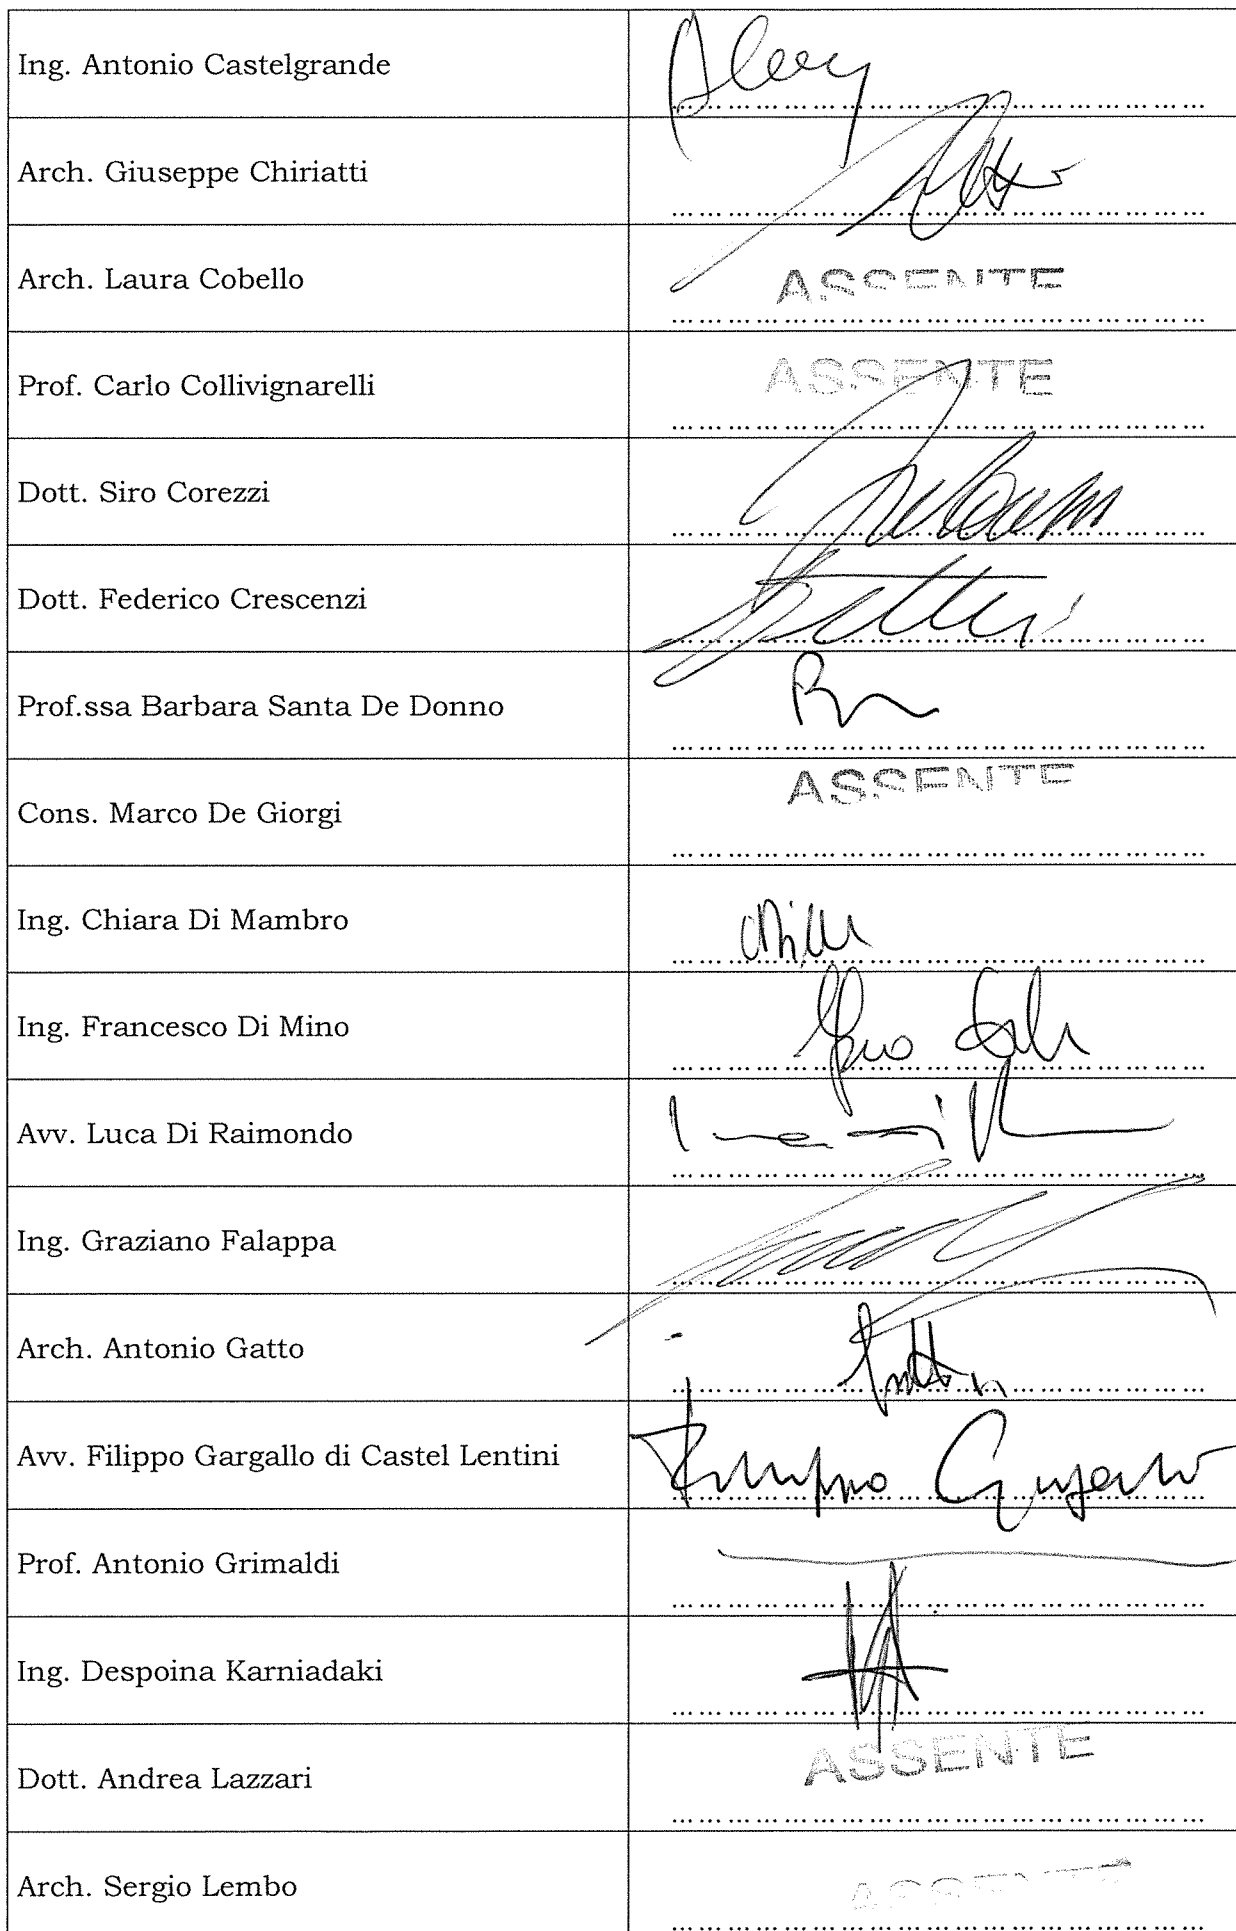 Ing. Antonio Castelgrande
Arch. Giuseppe Chiriatti
Arch. Laura Cobello ASSENTE
Prof. Carlo Collivignarelli ASSENTE
Dott. Siro Corezzi
Dott. Federico Crescenzi
Prof.ssa Barbara Santa De Donno
Cons. Marco De Giorgi ASSENTE
Ing. Chiara Di Mambro
Ing. Francesco Di Mino
Avv. Luca Di Raimondo
Ing. Graziano Falappa
Arch. Antonio Gatto
Avv. Filippo Gargallo di Castel Lentini Filippo Gargallo
Prof. Antonio Grimaldi
Ing. Despoina Karniadaki
Dott. Andrea Lazzari ASSENTE
Arch. Sergio Lembo ASSENTE